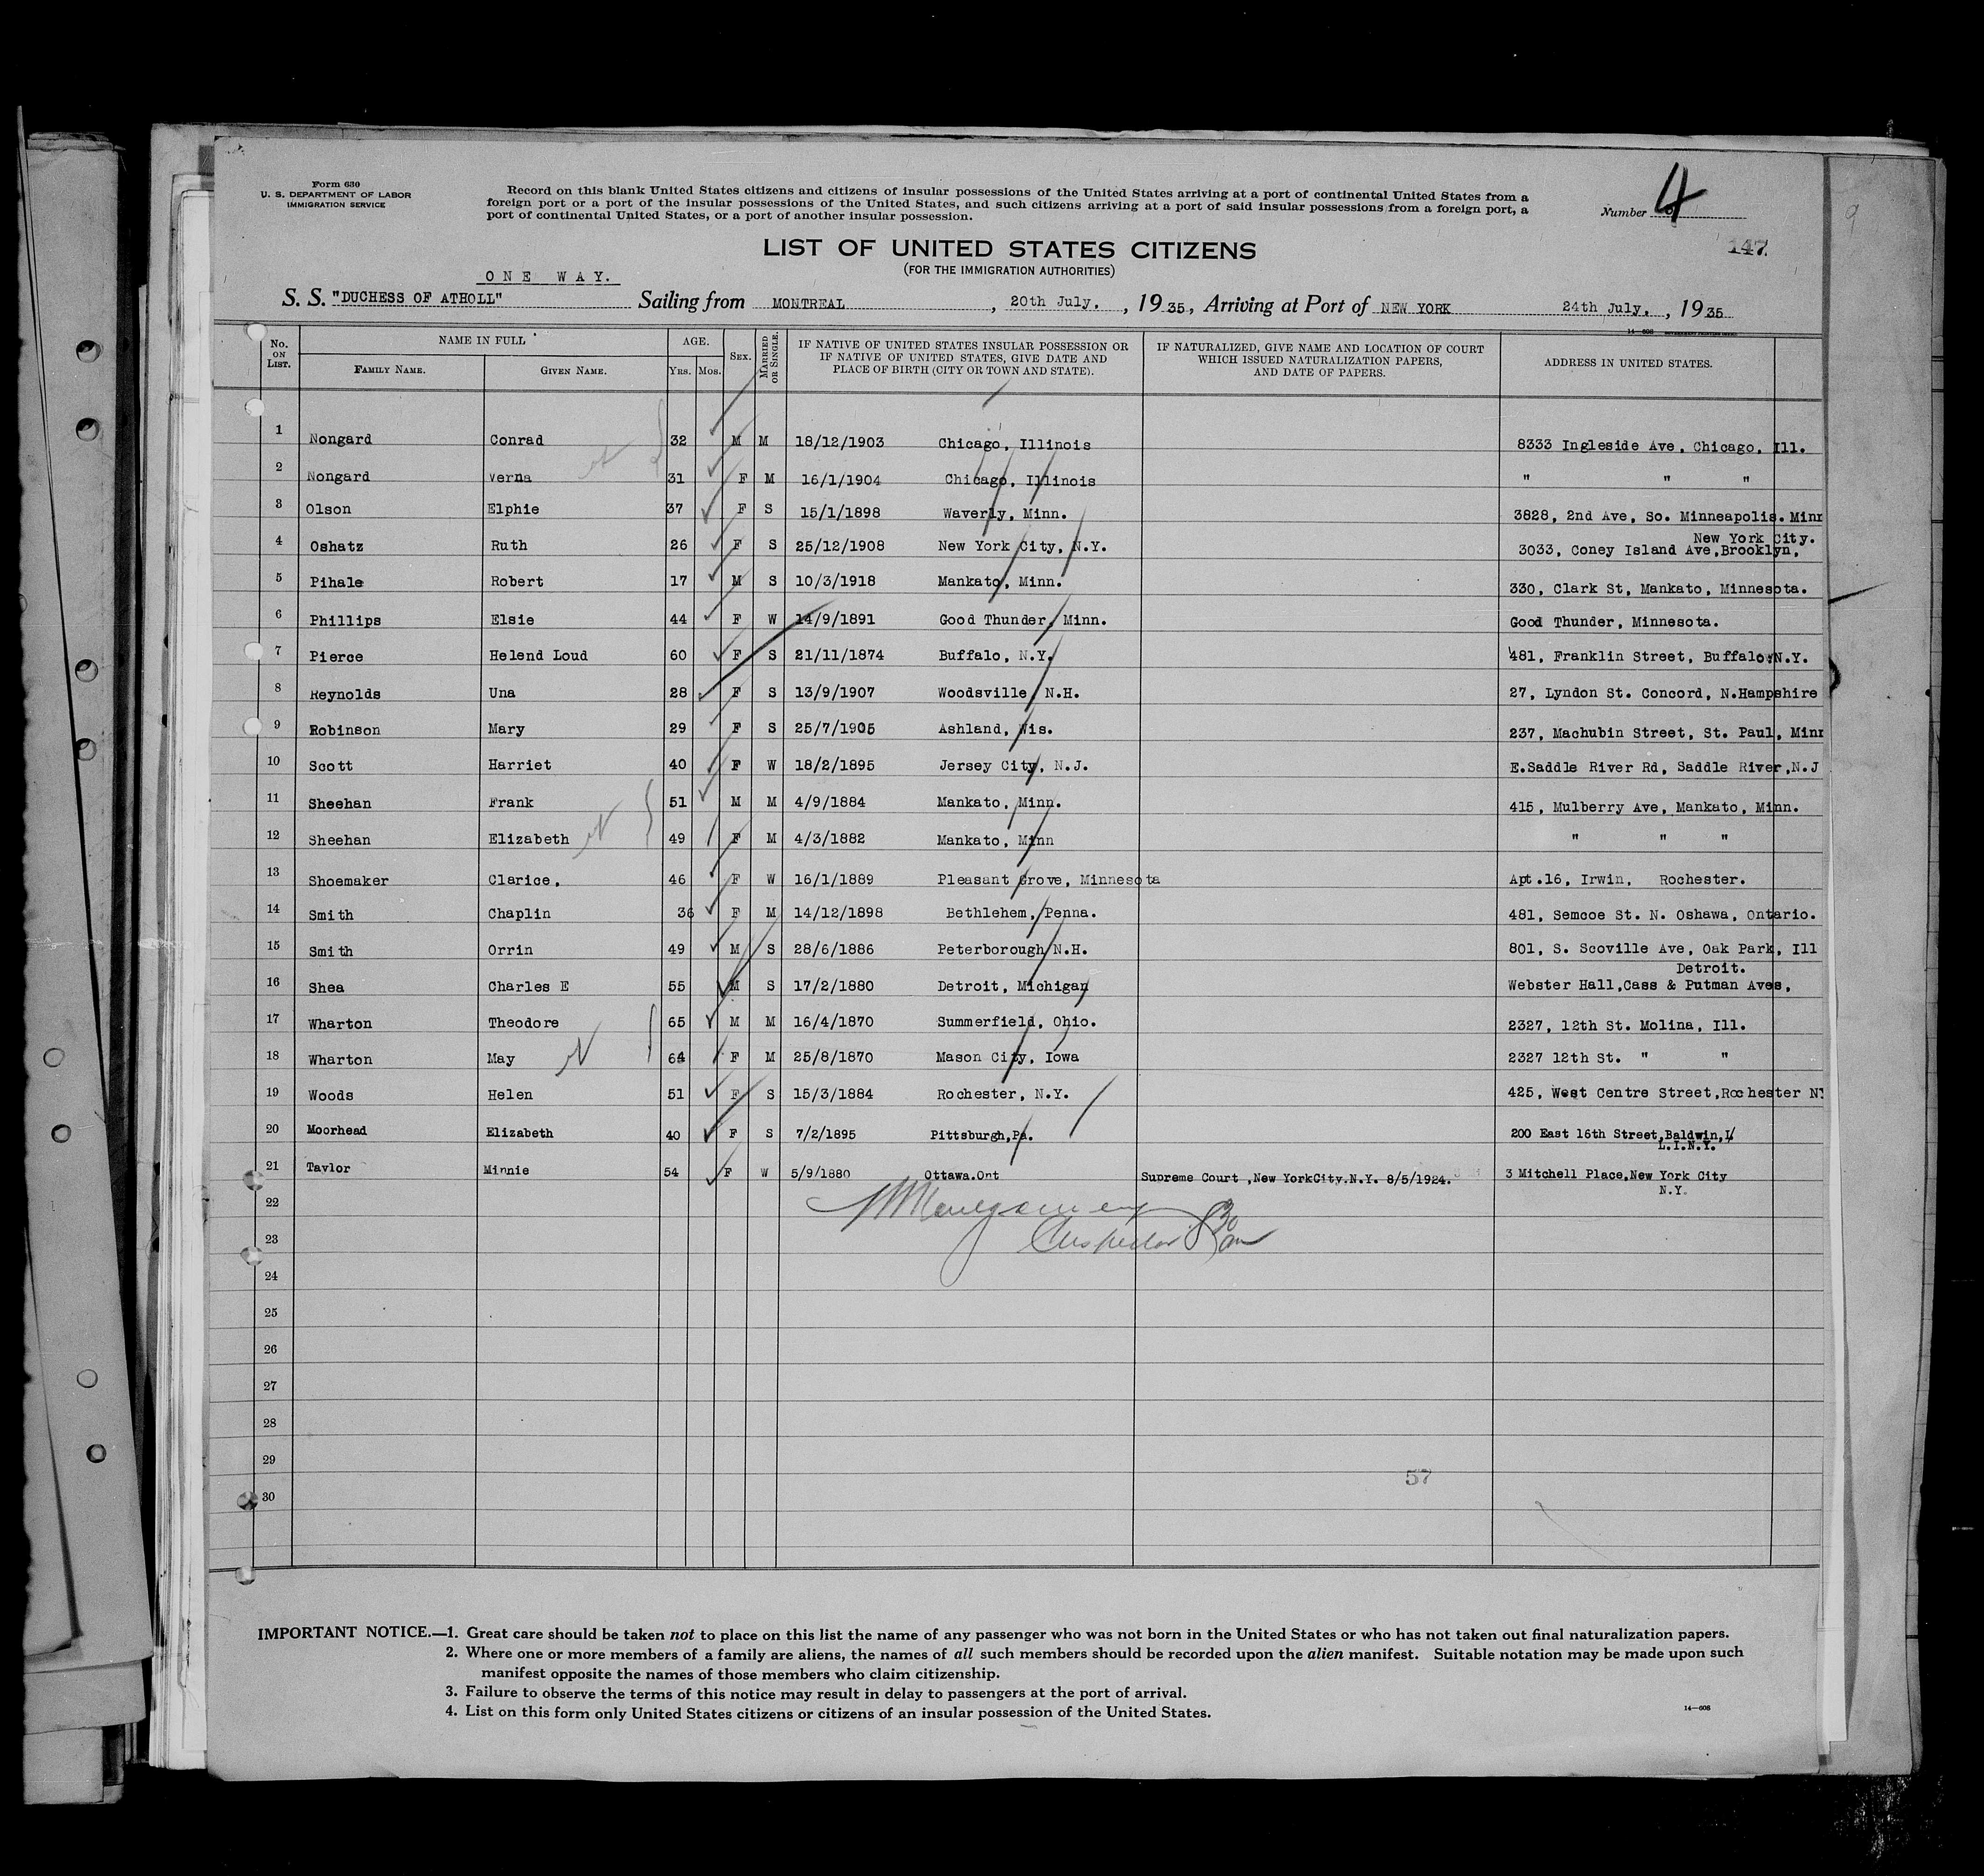 Form 630
U. S. DEPARTMENT OF LABOR
IMMIGRATION SERVICE
Record on this blank United States citizens and citizens of insular possessions of the United States arriving at a port of continental United States from a
foreign port or a port of the insular possessions of the United States, and such citizens arriving at a port of said insular possessions from a foreign port, a
port of continental United States, or a port of another insular possession.
Number 4
147
LIST OF UNITED STATES CITIZENS
(FOR THE IMMIGRATION AUTHORITIES)
ONE WAY.
S. S. "DUCHESS OF ATHOLL" Sailing from MONTREAL, 20th July, , 1935, Arriving at Port of NEW YORK 24th July, , 1935
14-608
No. ON LIST. NAME IN FULL AGE. SEX. MARRIED OR SINGLE. IF NATIVE OF UNITED STATES INSULAR POSSESSION OR IF NATIVE OF UNITED STATES, GIVE DATE AND PLACE OF BIRTH (CITY OR TOWN AND STATE). IF NATURALIZED, GIVE NAME AND LOCATION OF COURT WHICH ISSUED NATURALIZATION PAPERS, AND DATE OF PAPERS. ADDRESS IN UNITED STATES.
FAMILY NAME. GIVEN NAME. YRS. MOS.
1 Nongard Conrad 32 M M 18/12/1903 Chicago, Illinois 8333 Ingleside Ave, Chicago, Ill.
2 Nongard Verna 31 F M 16/1/1904 Chicago, Illinois " " "
3 Olson Elphie 37 F S 15/1/1898 Waverly, Minn. 3828, 2nd Ave, So. Minneapolis. Minn
4 Oshatz Ruth 26 F S 25/12/1908 New York City, N.Y. 3033, Coney Island Ave,Brooklyn, New York City.
5 Pihale Robert 17 M S 10/3/1918 Mankato, Minn. 330, Clark St, Mankato, Minnesota.
6 Phillips Elsie 44 F W 14/9/1891 Good Thunder, Minn. Good Thunder, Minnesota.
7 Pierce Helend Loud 60 F S 21/11/1874 Buffalo, N.Y. 481, Franklin Street, Buffalo,N.Y.
8 Reynolds Una 28 F S 13/9/1907 Woodsville, N.H. 27, Lyndon St. Concord, N.Hampshire
9 Robinson Mary 29 F S 25/7/1905 Ashland, Wis. 237, Machubin Street, St. Paul, Minn
10 Scott Harriet 40 F W 18/2/1895 Jersey City, N.J. E.Saddle River Rd, Saddle River,N.J
11 Sheehan Frank 51 M M 4/9/1884 Mankato, Minn. 415, Mulberry Ave, Mankato, Minn.
12 Sheehan Elizabeth 49 F M 4/3/1882 Mankato, Minn " " "
13 Shoemaker Clarice, 46 F W 16/1/1889 Pleasant Grove, Minnesota Apt.16, Irwin, Rochester.
14 Smith Chaplin 36 F M 14/12/1898 Bethlehem, Penna. 481, Semcoe St. N. Oshawa, Ontario.
15 Smith Orrin 49 M S 28/6/1886 Peterborough N.H. 801, S. Scoville Ave, Oak Park, Ill
16 Shea Charles E 55 M S 17/2/1880 Detroit, Michigan Webster Hall,Cass & Putman Aves, Detroit.
17 Wharton Theodore 65 M M 16/4/1870 Summerfield, Ohio. 2327, 12th St. Molina, Ill.
18 Wharton May 64 F M 25/8/1870 Mason City, Iowa 2327 12th St. " "
19 Woods Helen 51 F S 15/3/1884 Rochester, N.Y. 425, West Centre Street,Rochester NY
20 Moorhead Elizabeth 40 F S 7/2/1895 Pittsburgh,Pa. 200 East 16th Street,Baldwin, L.I.N.Y.
21 Taylor Minnie 54 F W 5/9/1880 Ottawa.Ont Supreme Court ,New YorkCity.N.Y. 8/5/1924. 3 Mitchell Place,New York City N.Y.
22
23 Inspector
24
25
26
27
28
29
57
30
IMPORTANT NOTICE.—1. Great care should be taken not to place on this list the name of any passenger who was not born in the United States or who has not taken out final naturalization papers.
2. Where one or more members of a family are aliens, the names of all such members should be recorded upon the alien manifest. Suitable notation may be made upon such
manifest opposite the names of those members who claim citizenship.
3. Failure to observe the terms of this notice may result in delay to passengers at the port of arrival.
4. List on this form only United States citizens or citizens of an insular possession of the United States.
14—608